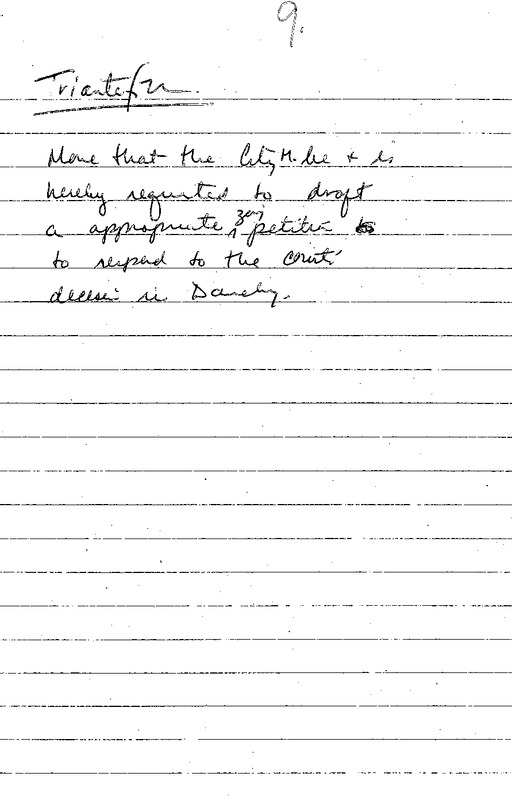 9.
Move that the City M. be & is
hereby requested to draft
a appropriate zong petition
to respond to the Courts'
decision in Danehy.